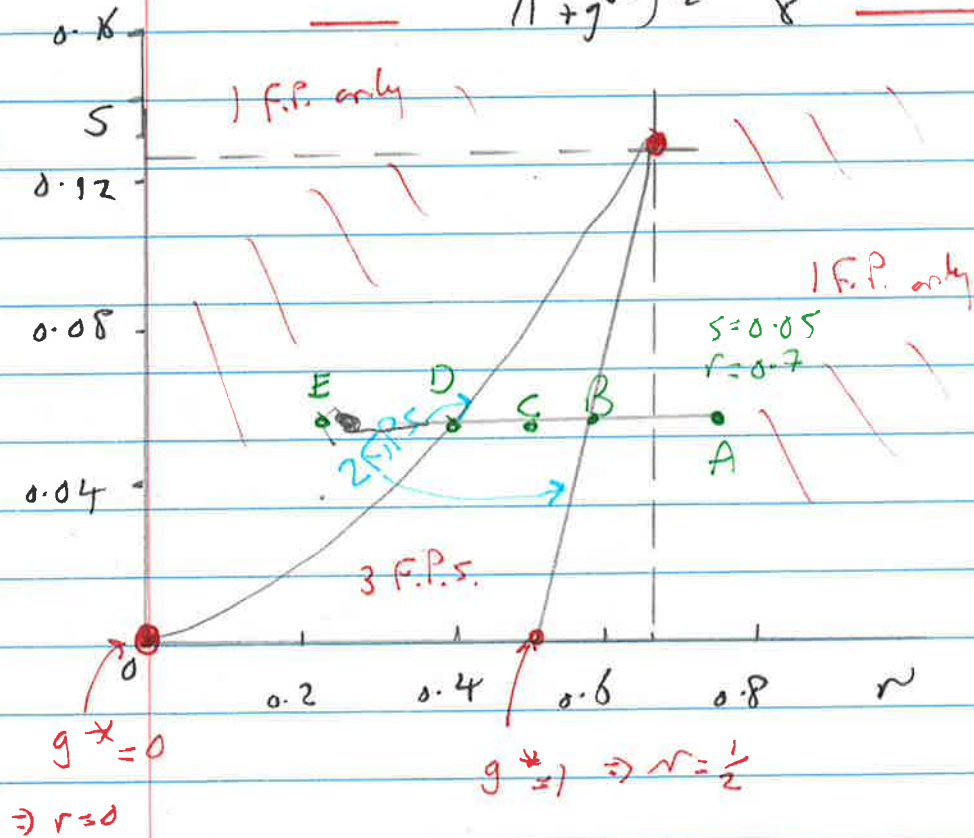 (1 + g² )² 8
0.16
1 F.P. only
S
0.12
1 F.P. only
0.08
s=0.05
r=0.7
E D C B
A
2 F.P.s
0.04
3 F.P.s.
0 0.2 0.4 0.6 0.8 r
g*=0
g*=1 ⇒ r = 1/2
⇒ r=0